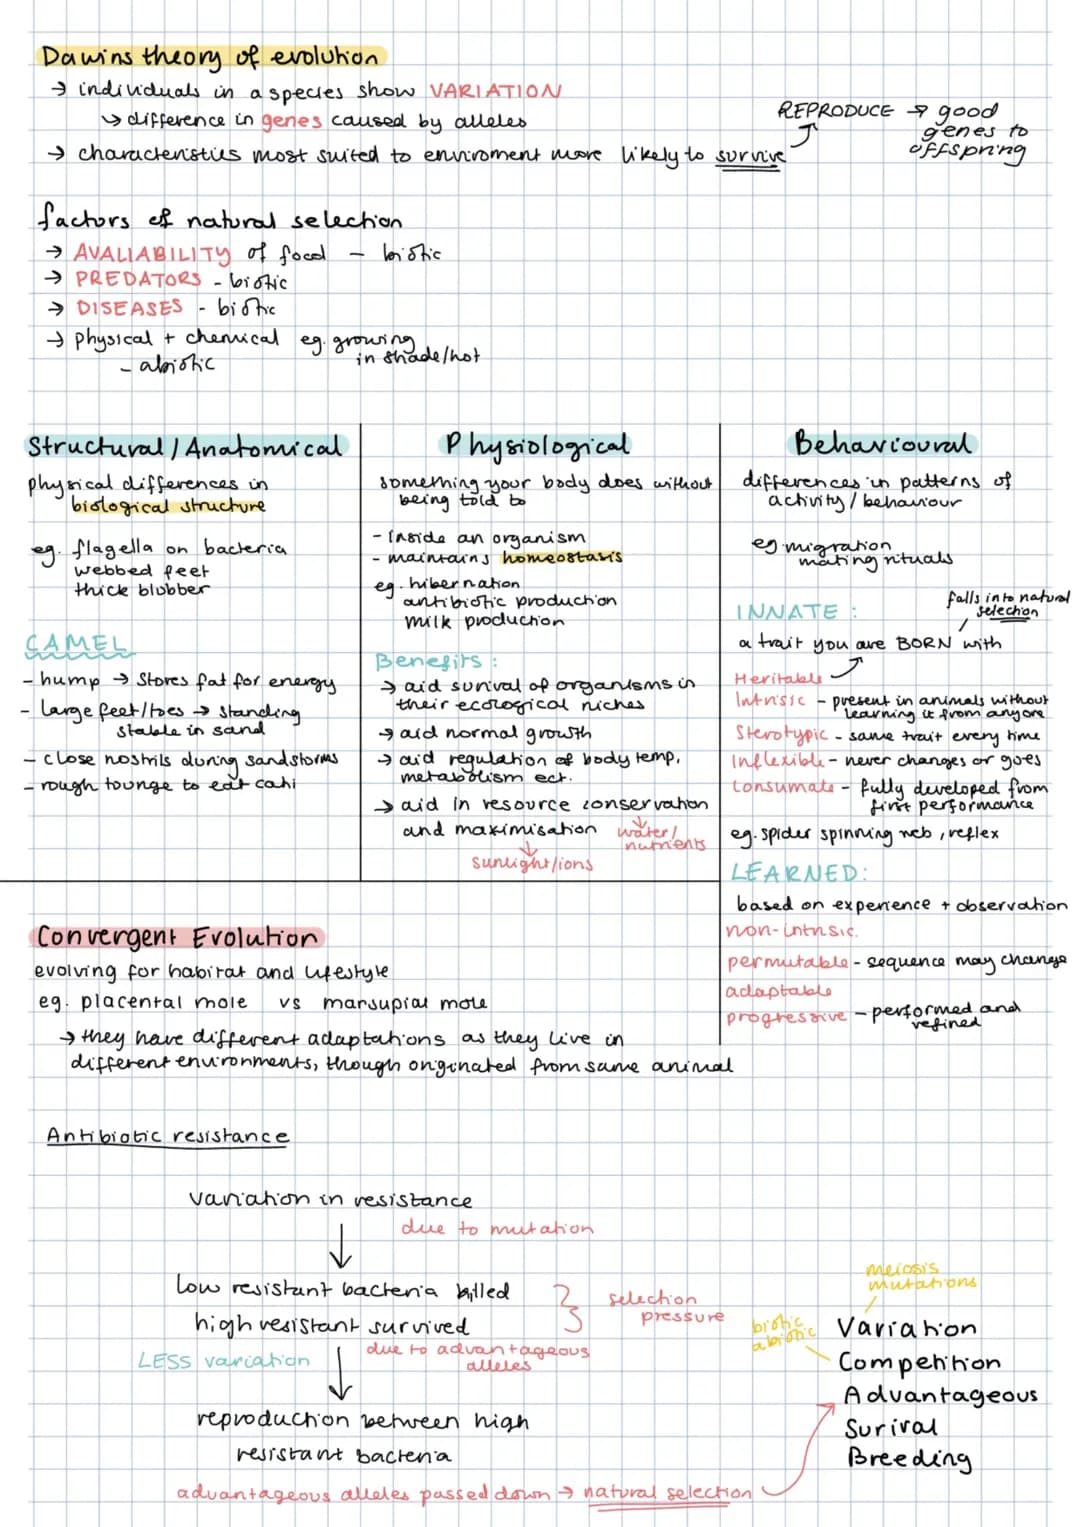 Dawins theory of evolution
→ individuals in a species show VARIATION
↳ difference in genes caused by alleles
→ characteristics most suited to enviroment more likely to survive
REPRODUCE → good
genes to
offspring
factors of natural selection
→ AVALIABILITY of food - biotic
→ PREDATORS - biotic
→ DISEASES - biotic
→ physical + chemical eg. growing
in shade/hot
- abiotic
Structural/Anatomical
physical differences in
biological structure
eg. flagella on bacteria
webbed feet
thick blubber
CAMEL
- hump → stores fat for energy
- large feet/toes → standing
stable in sand
- close nostrils during sandstorms
- rough tounge to eat cahi
Physiological
something your body does without
being told to
- inside an organism
- maintains homeostasis
eg. hibernation
antibiotic production
milk production
Benefits :
→ aid surival of organisms in
their ecological niches
→ aid normal growth
→ aid regulation of body temp,
metabolism ect.
→ aid in resource conservation
and maximisation
water/
nutrients
sunlight/ions
Behavioural
differences in patterns of
activity/behaviour
eg. migration
mating rituals
falls into natural
selection
INNATE :
a trait you are BORN with
Heritable
Intrisic - present in animals without
learning it from anyone
Sterotypic - same trait every time
Inflexible - never changes or goes
Consumate - fully developed from
first performance
eg. spider spinning web, reflex
LEARNED:
based on experience + observation
non-intrisic.
permutable - sequence may change
adaptable
progressive - performed and
refined
Convergent Evolution
evolving for habitat and lifestyle
eg. placental mole vs marsupial mole
→ they have different adaptations as they live in
different environments, though originated from same animal
Antibiotic resistance
variation in resistance
due to mutation
low resistant bacteria killed
high resistant survived
selection
pressure
LESS variation
due to advantageous
alleles
reproduction between high
resistant bacteria
advantageous alleles passed down → natural selection
meiosis
mutations
biotic
abiotic
Variation
Competition
Advantageous
Surival
Breeding